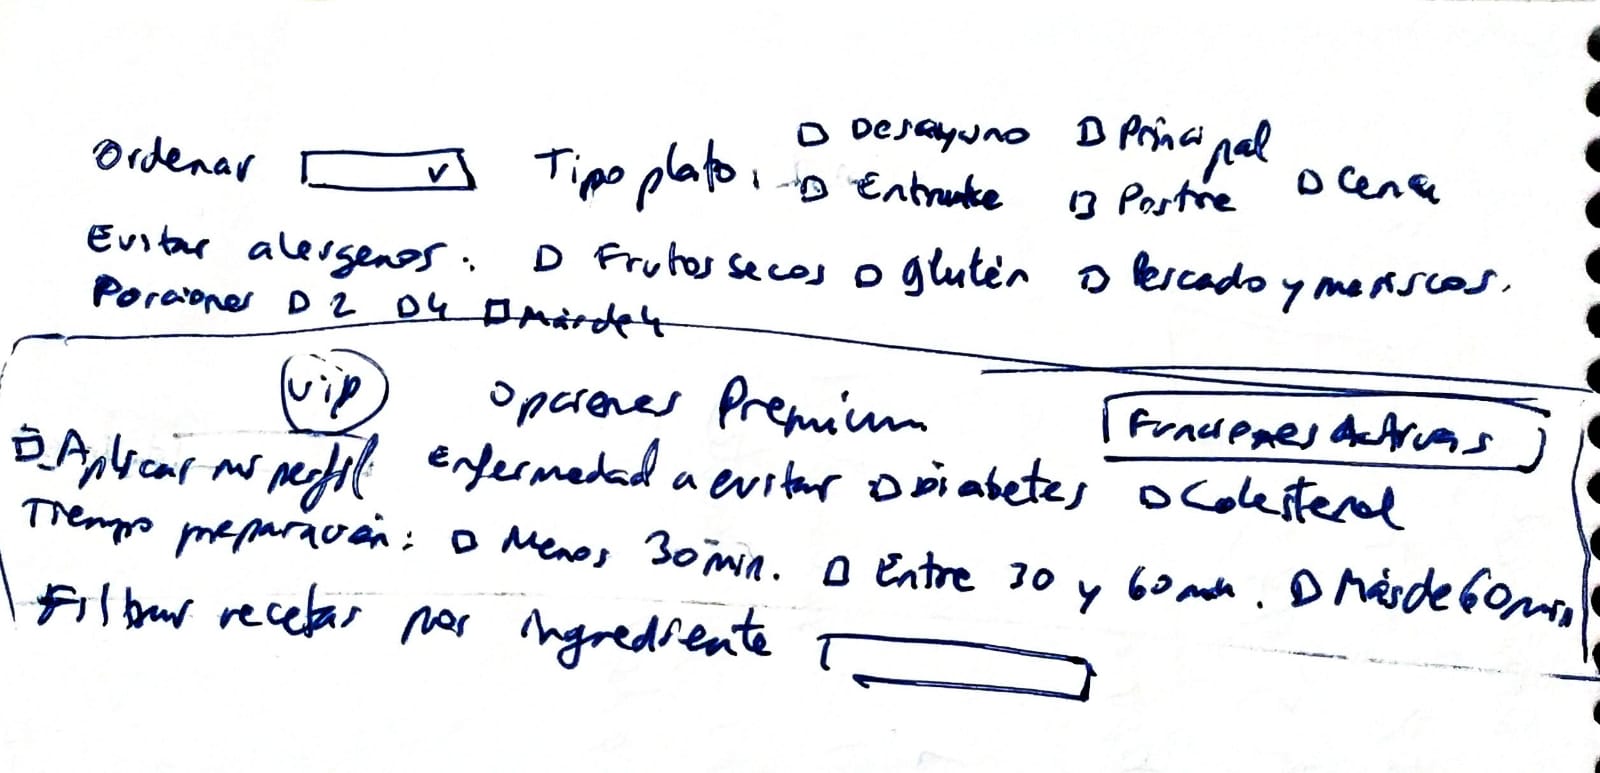 Ordenar Tipo plato: Desayuno Principal
Entrante Postre Cena
Evitar alergenos: Frutos secos glutén Pescado y mariscos.
Porciones 2 4 Más de 4
Vip Opciones Premium Funciones Activas
Aplicar mi perfil Enfermedad a evitar Diabetes Colesterol
Tiempo preparación: Menos 30 min. Entre 30 y 60 min. Más de 60 min
Filtrar recetas por ingrediente